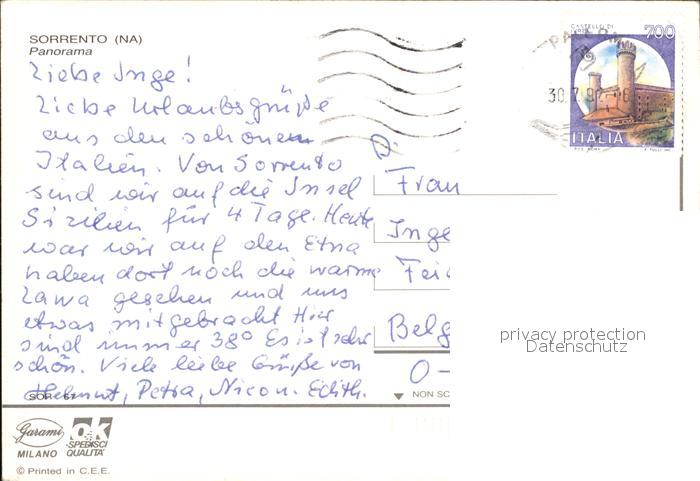 SORRENTO (NA)
Panorama
Liebe Inge!
Liebe Urlaubsgrüße
aus den schönen
Italien. Von Sorrento
sind wir auf die Insel
Sizilien für 4 Tage. Heute
war wir auf den Etna
haben dort noch die warme
Lawa gesehen und uns
etwas mitgebracht Hier
sind immer 38° Es ist sehr
schön. Viele liebe Grüße von
Helmut, Petra, Nico u. Edith.
D.
Frau
Inge
Belg
0-
CASTELLO DI
700
ITALIA
30.7.9
privacy protection
Datenschutz
NON SC
Garami
MILANO
OK
SPEDISCI
QUALITÀ
© Printed in C.E.E.